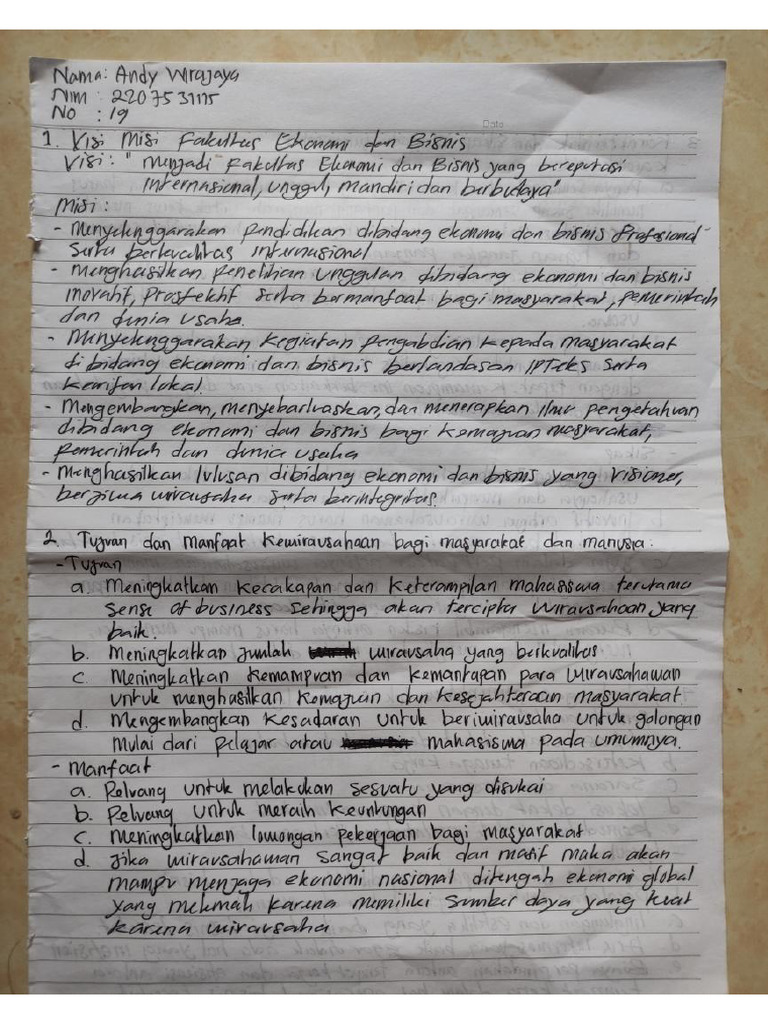 Nama: Andy Wirajaya
Nim : 2207531115
No : 19
Date
1. Visi Misi Fakultas Ekonomi dan Bisnis
Visi : " Menjadi Fakultas Ekonomi dan Bisnis yang bereputasi
Internasional, unggul, mandiri dan berbudaya"
Misi :
- Menyelenggarakan pendidikan dibidang ekonomi dan bisnis Profesional
serta berkualitas internasional
- Menghasilkan penelitian unggulan dibidang ekonomi dan bisnis
inovatif, prospektif serta bermanfaat bagi masyarakat, pemerintah
dan dunia usaha.
- Menyelenggarakan kegiatan pengabdian kepada masyarakat
dibidang ekonomi dan bisnis berlandasan IPTeks serta
kearifan lokal.
- Mengembangkan, menyebarluaskan, dan menerapkan ilmu pengetahuan
dibidang ekonomi dan bisnis bagi kemajuan masyarakat,
pemerintah dan dunia usaha
- Menghasilkan lulusan dibidang ekonomi dan bisnis yang visioner,
berjiwa wirausaha serta berintegritas.
2. Tujuan dan manfaat kewirausahaan bagi masyarakat dan manusia:
- Tujuan
a. Meningkatkan kecakapan dan keterampilan mahasiswa terutama
sense of business sehingga akan tercipta wirausahaan yang
baik.
b. Meningkatkan jumlah wirausaha yang berkualitas
c. Meningkatkan kemampuan dan kemantapan para wirausahawan
untuk menghasilkan kemajuan dan kesejahteraan masyarakat.
d. Mengembangkan kesadaran untuk berwirausaha untuk golongan
mulai dari pelajar atau mahasiswa pada umumnya.
- Manfaat
a. Peluang untuk melakukan sesuatu yang disukai
b. Peluang untuk meraih keuntungan
c. Meningkatkan lowongan pekerjaan bagi masyarakat
d. Jika wirausahawan sangat baik dan masif maka akan
mampu menjaga ekonomi nasional ditengah ekonomi global
yang melemah karena memiliki sumber daya yang kuat
karena wirausaha